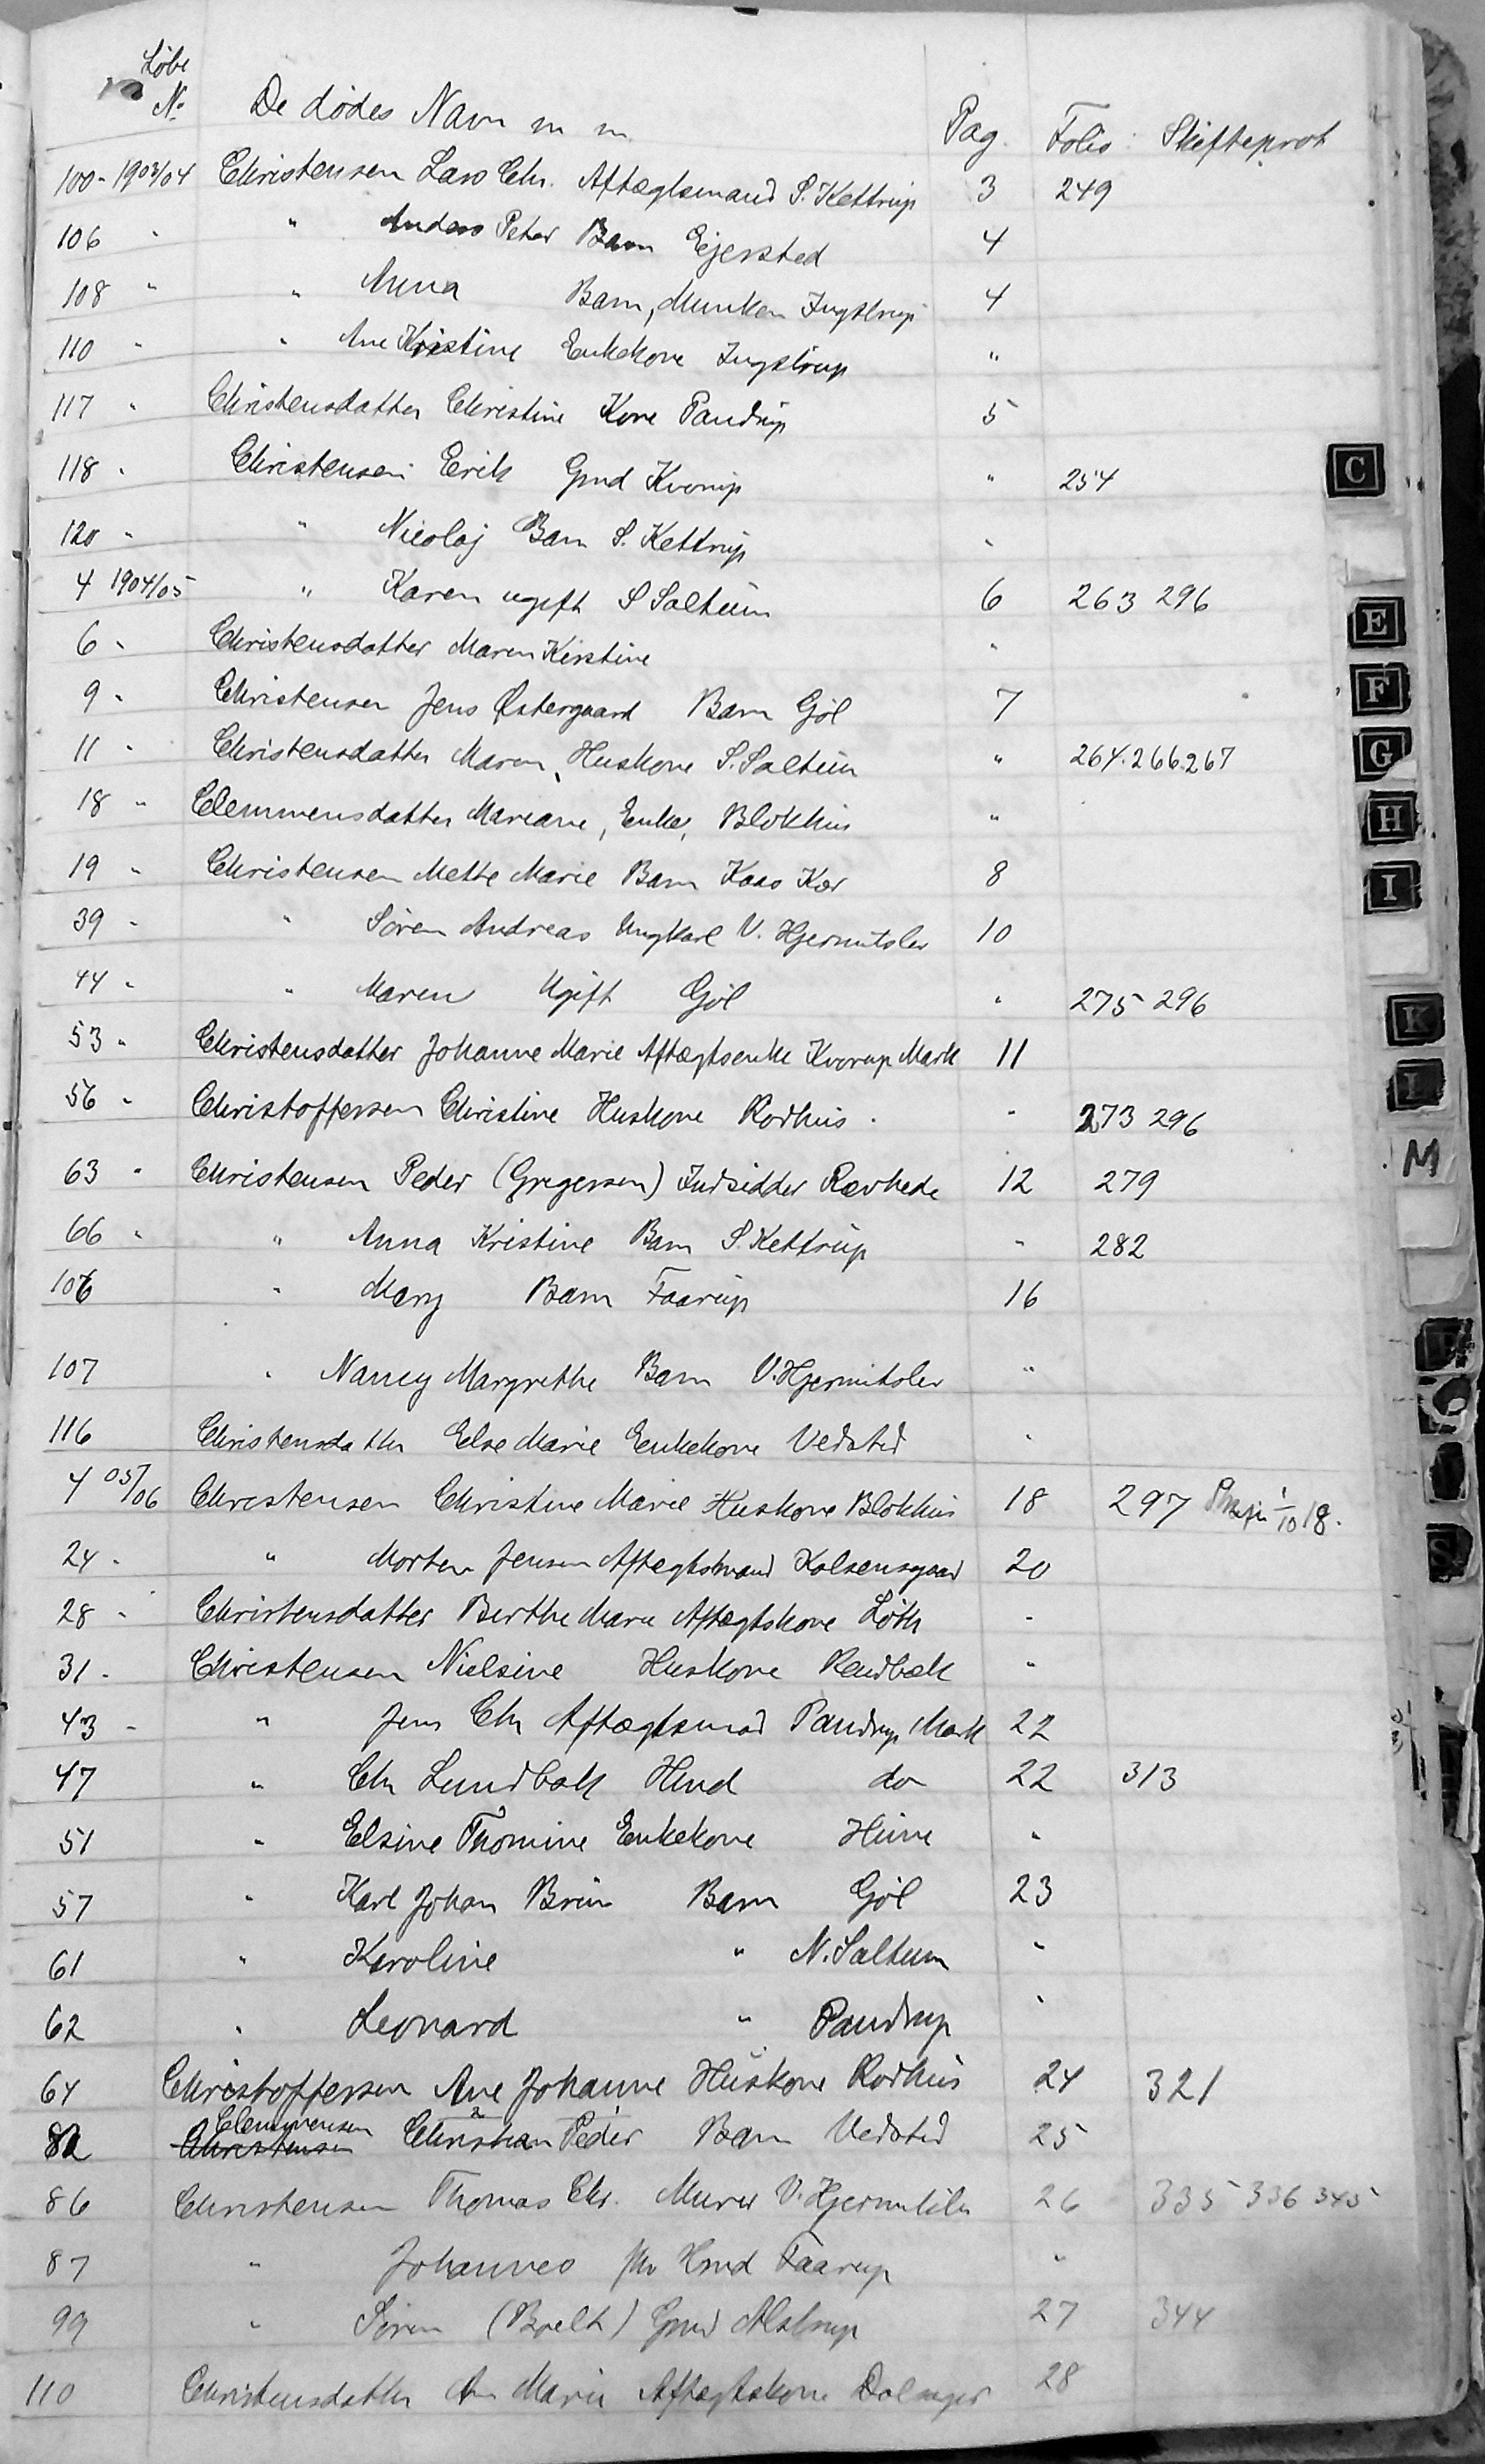 Løbe
No De dødes Navn m m. Pag. Folio Skifteprot
100 - 1903/04 Christensen Lars Chr. Aftægtsmand S. Kettrup 3 249
106 " " Anders Peter Barn Ejersted 4
108 " " Anna Barn, Munken Ingstrup 4
110 " " Ane Kristine Enkekone Ingstrup "
117 " Christensdatter Christine Kone Pandrup 5
118 " Christensen Erik Gmd Kvorup " 254
120 " " Nicolaj Barn S. Kettrup "
4 1904/05 " Karen ugift S Saltum 6 263 296
6 " Christensdatter Maren Kirstine "
9 " Christensen Jens Østergaard Barn Gjøl 7
11 " Christensdatter Maren, Huskone S. Saltum " 264.266.267
18 " Clemmensdatter Mariane, Enke, Blokhus "
19 " Christensen Mette Marie Barn Kaas Kær 8
39 " " Søren Andreas Ungkarl V. Hjermitslev 10
44 " " Maren Ugift Gjøl " 275 296
53 " Christensdatter Johanne Marie Aftægtsenke Kvorup Mark 11
56 " Christoffersen Christine Huskone Rødhus " 273 296
63 " Christensen Peder (Gregersen) Indsidder Rævhede 12 279
66 " " Anna Kristine Barn S. Kettrup " 282
106 " Mary Barn Faarup 16
107 " Nancy Margrethe Barn V. Hjermitslev "
116 Christensdatter Else Marie Enkekone Vedsted "
4 05/06 Christensen Christine Marie Huskone Blokhus 18 297 1/10 18.
24 " " Morten Jensen Aftægtsmand Kolsensgaard 20
28 " Christensdatter Birthe Marie Aftægtskone Løth "
31 " Christensen Nielsine Huskone Rendbæk "
43 " " Jens Chr Aftægtsmd Pandrup Mark 22
47 " Chr Lundbæk Hmd do 22 313
51 " Elsine Thomine Enkekone Hune "
57 " Karl Johan Brun Barn Gjøl 23
61 " Karoline " N. Saltum "
62 " Leonard " Pandrup "
64 Christoffersen Ane Johanne Huskone Rødhus 24 321
Clemmensen
82 Christensen Christian Peder Barn Vedsted 25
86 Christensen Thomas Chr. Murer V. Hjermitslev 26 335 336 345
87 " Johannes Hmd Faarup "
99 " Søren (Bælt) Gmd Alstrup 27 344
110 Christensdatter An Marie Aftægtskone 28
C
E
F
G
H
I
K
L
M
P
S